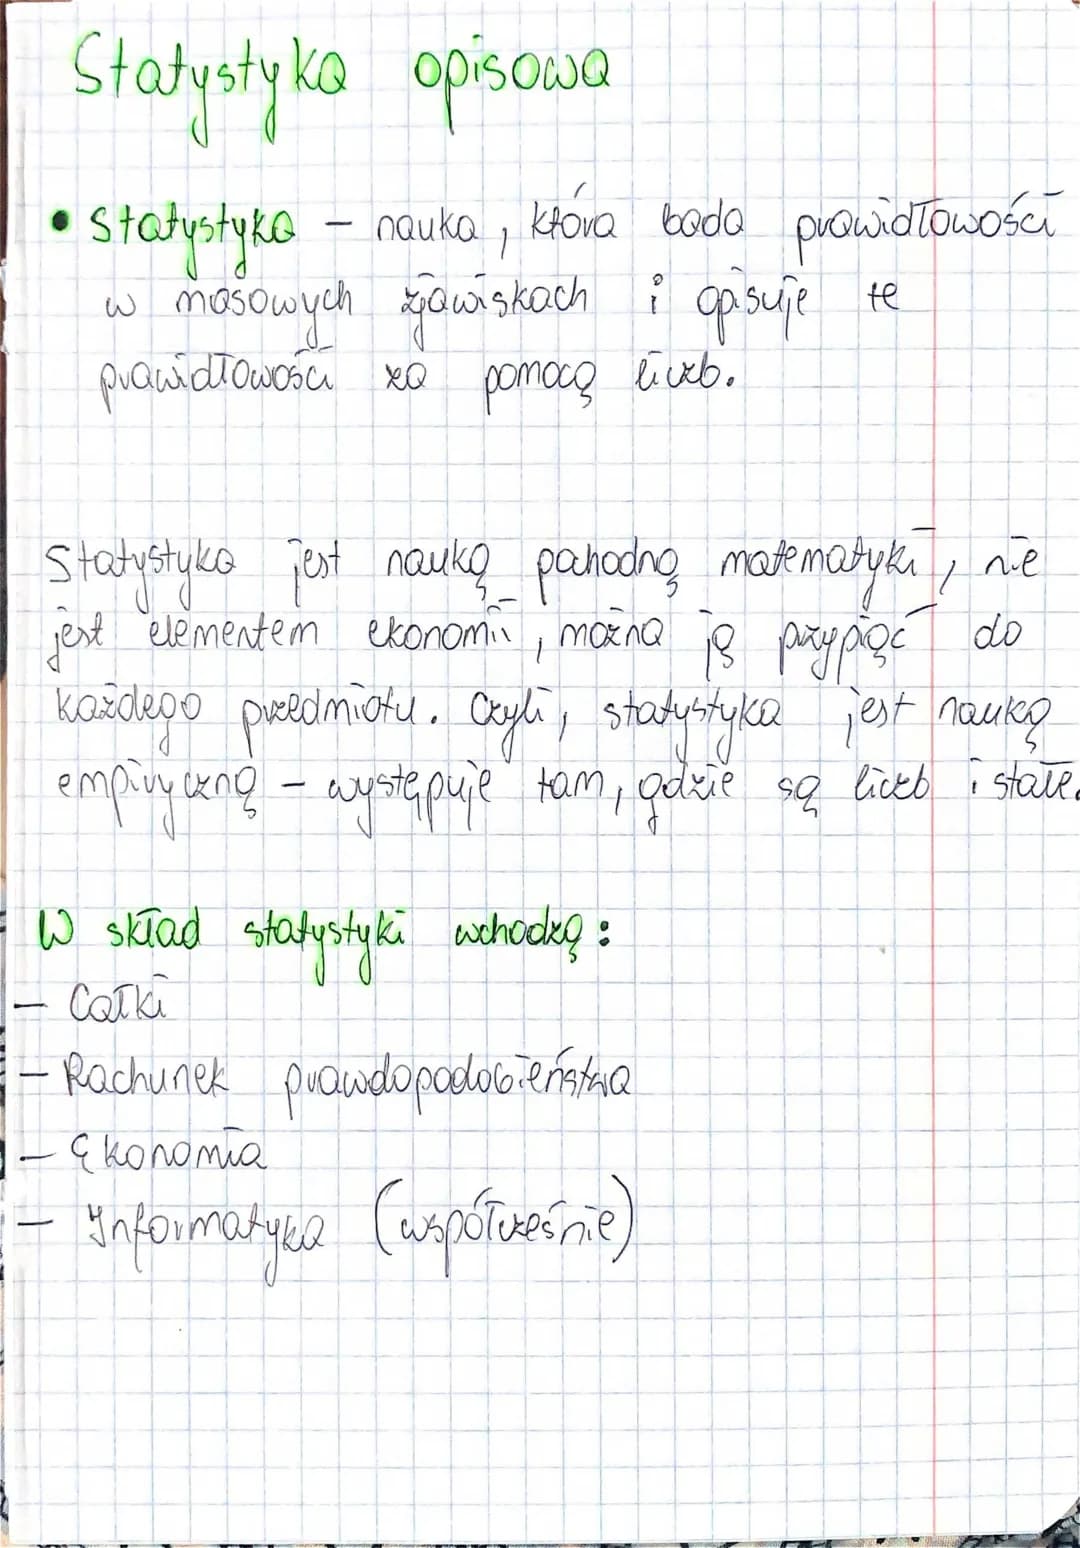 Statystyka opisowa
• Statystyka – nauka, która bada prawidłowości
w masowych zjawiskach i opisuje te
prawidłowości za pomocą liczb.
Statystyka jest nauką pochodną matematyki, nie
jest elementem ekonomii, można ją przypiąć do
każdego przedmiotu. Czyli, statystyka jest nauką
empiryczną – występuje tam, gdzie są liczb i stałe.
W skład statystyki wchodzą:
– Całki
– Rachunek prawdopodobieństwa
– Ekonomia
– Informatyka (współcześnie)